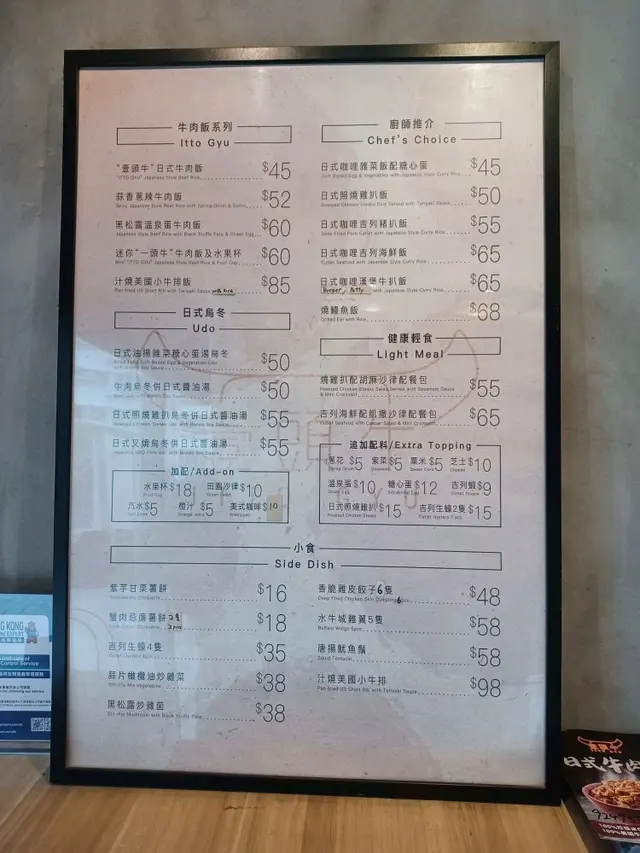 牛肉飯系列
Itto Gyu
"壹頭牛"日式牛肉飯 $45
"ITTO GYU" Japanese Style Beef Rice
蒜香蔥辣牛肉飯 $52
黑松露溫泉蛋牛肉飯 $60
迷你"一頭牛"牛肉飯及水果杯 $60
Mini "ITTO GYU" Japanese Style Beef Rice & Fruit Cup
汁燒美國小牛排飯 $85
Pan fried US Short Rib with Teriyaki Sauce with Rice
日式烏冬
Udo
日式油揚雜菜糖心蛋湯烏冬 $50
牛肉烏冬併日式醬油湯 $50
日式照燒雞扒烏冬併日式醬油湯 $55
日式叉燒烏冬併日式醬油湯 $55
加配/Add-on
水果杯$18 田園沙律$10
Fruit Cup
汽水$5 橙汁$5 美式咖啡$10
Orange Juice
廚師推介
Chef's Choice
日式咖喱雜菜飯配糖心蛋 $45
日式照燒雞扒飯 $50
日式咖喱吉列豬扒飯 $55
Deep Fried Pork Cutlet with Japanese Style Curry Rice
日式咖喱吉列海鮮飯 $65
Cutlet Seafood with Japanese Style Curry Rice
日式咖喱漢堡牛扒飯 $65
Burger Patty with Japanese Style Curry Rice
燒鰻魚飯 $68
Grilled Eel with Rice
健康輕食
Light Meal
燒雞扒配胡麻沙律配餐包 $55
Roasted Chicken Steaks Salad Served with Sesamum Sauce
& Mini Croissant
吉列海鮮配凱撒沙律配餐包 $65
Cutlet Seafood with Caesar Salad & Mini Croissant
追加配料/Extra Topping
蔥花 $5 紫菜$5 粟米 $5 芝士$10
溫泉蛋$10 糖心蛋 $12 吉列蝦$9
日式照燒雞扒 $15 吉列生蠔2隻 $15
小食
Side Dish
紫芋甘栗薯餅 $16
蟹肉忌廉薯餅 2隻 $18
2pcs
吉列生蠔4隻 $35
蒜片橄欖油炒雜菜 $38
黑松露炒雜菌 $38
Stir-fry Mushroom with Black Truffle Paste
香脆雞皮餃子6隻 $48
Deep Fried Chicken Skin Dumpling 6
水牛城雞翼5隻 $58
Buffalo Wings 5pcs
唐揚魷魚鬚 $58
Squid Tentacle
汁燒美國小牛排 $98
Pan fried US Short Rib with Teriyaki Sauce
日式牛肉